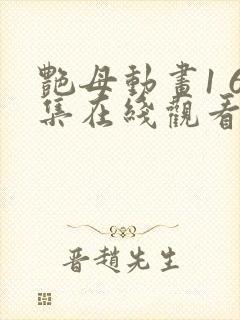 艷母動畫16
集在綫觀看
晋趙先生